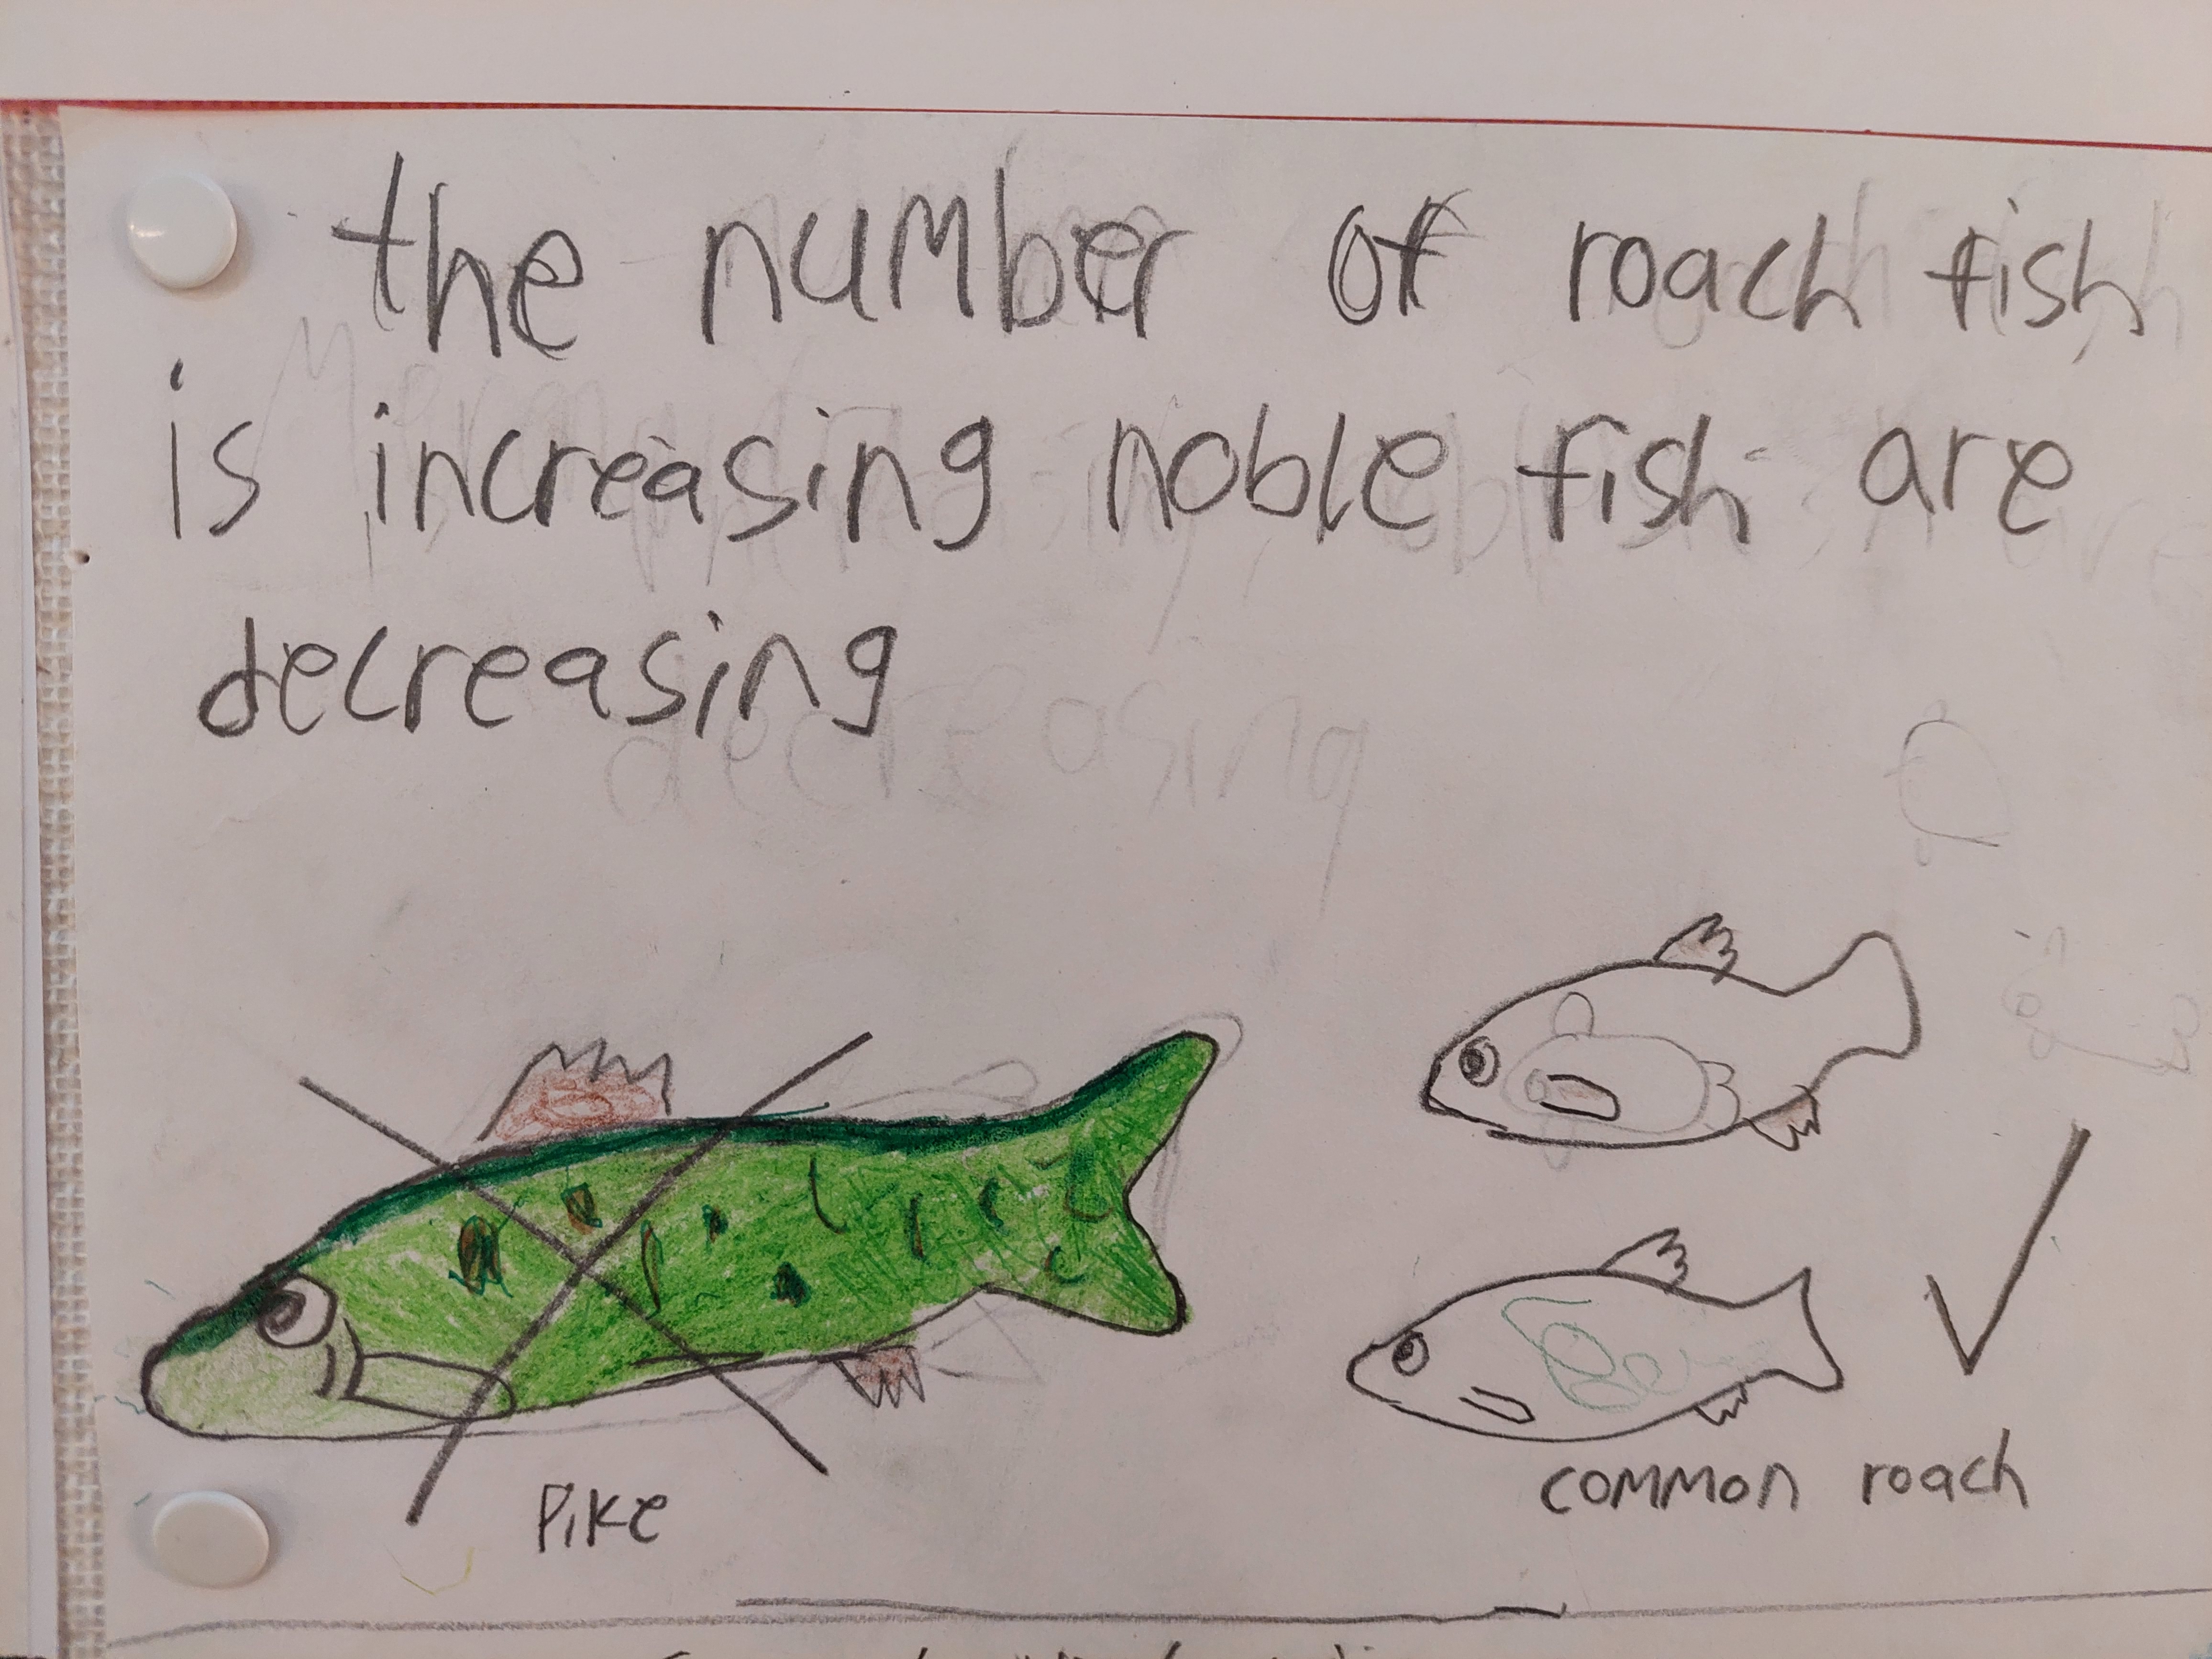 the number of roach fish
is increasing noble fish are
decreasing
Pike
common roach